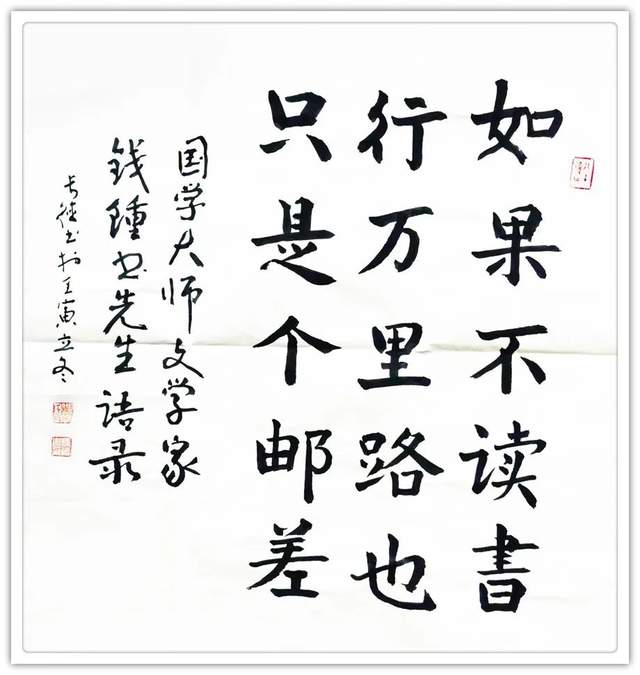 如果不读書
行万里路也
只是个邮差
国学大师文学家
钱鍾书先生语录
长征书於壬寅立冬